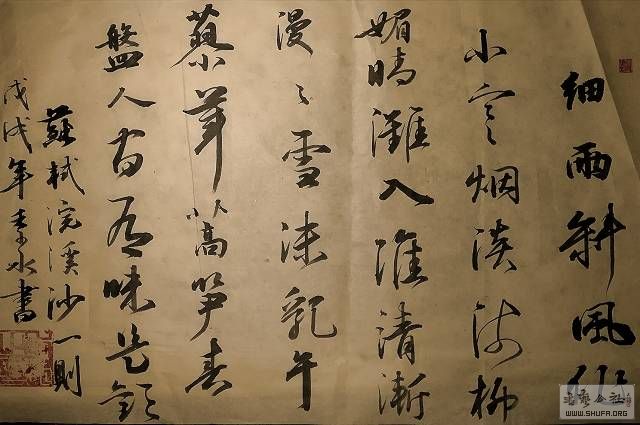 細雨斜風作
小寒烟淡疏柳
媚晴灘入淮清漸
漫〻雪沫乳午
蓼茸蒿笋春
盤人間有味是歡
蘇軾浣溪沙一則
戊戌年水書
WWW.SHUFA.ORG